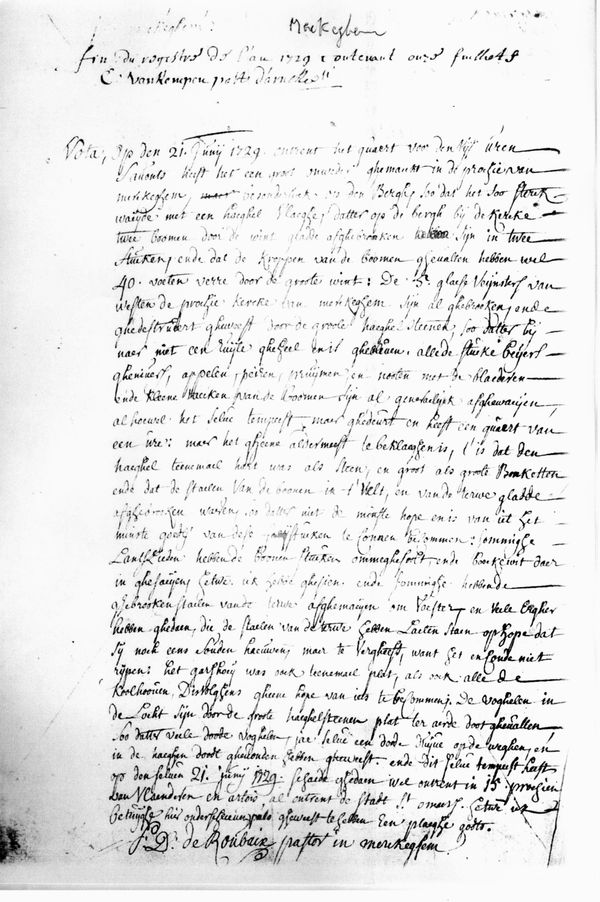 Merkeghem
fin du registre de l'an 1729 contenant onze feuillets
C. vankempen past. d'arneke
Nota, op den 21. Junij 1729. ontrent het quaert voor den vijf uren
t'savonts heeft het een groot onweder ghemaeckt in de prochie van
merkeghem, besonderlick op den Bergh, soo dat het soo sterck
waeijde met een haeghel vlaeghe, datter op de bergh bij de kercke
twee boomen door de wint gladde afghebroken sijn in twee
stucken, ende dat de kroppen van de boomen ghevallen hebben wel
40. voeten verre door de groote wint: De 5. glaese veijnsters van
westen de prochie kercke van merkeghem sijn al ghebroken, ende
ghedestrueert gheweest door de groote haeghel steenen, soo datter bij
naer niet een ruijte gheheel en is ghebleven. alle de stucke
appelen, peiren, pruijmen en noten met de bladeren
ende kleene tacken van de boomen sijn al generalijck afghewaeijen,
alhoewel het selve tempeest, maer ghedeurt en heeft een quaert van
een ure: maer het gheene aldermeest te beklaeghen is, t'is dat den
haeghel teenemael hart was als steen, en groot als groote Bonketten
ende dat de staelen van de boonen in t'velt, en van de terwe gladde
afghebroken waren, soo datter niet de minste hope en is van uit het
minste goedts van dese stucken te connen becommen: sommighe
Lantslieden hebben de boonen stucken ommeghestelt, ende boeckwit daer
in ghesaeijen, hetwelck ick hebbe ghesien. ende sommighe hebben de
ghebroken staelen vande terwe afghemaeijen om voeder, en veele
hebben ghedaen, die de staelen van de terwe hebben laeten staen op hope dat
sij noch eens souden, maer te vergheefs, want het en conde niet
rijpen: het gars was ock teenemael plat, als ock alle de
koolhooven, Dies volghens gheene hope van iets te becommen. De voghelen in
de Locht sijn door de groote haeghelsteenen plat ter aerde doot ghevallen
soo datter veele doode voghelen, jae selve een doode op de weghen, en
in de haeghen doodt ghevonden hebben gheweest. ende dit selve tempeest heeft
op den selven 21. Junij 1729. schaede ghedaen wel ontrent in 15 prochien
van Vlaenderen en artois al ontrent de stadt St omars. hetwelck ick
betuijghe hier onderschreven gheweest te hebben een plaeghe godts.
F. D. de Roubaix pastor in merckeghem